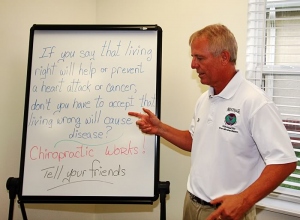 If you say that living
right will help or prevent
a heart attack or cancer,
don't you have to accept that
living wrong will cause
disease?
Chiropractic Works!
Tell your friends